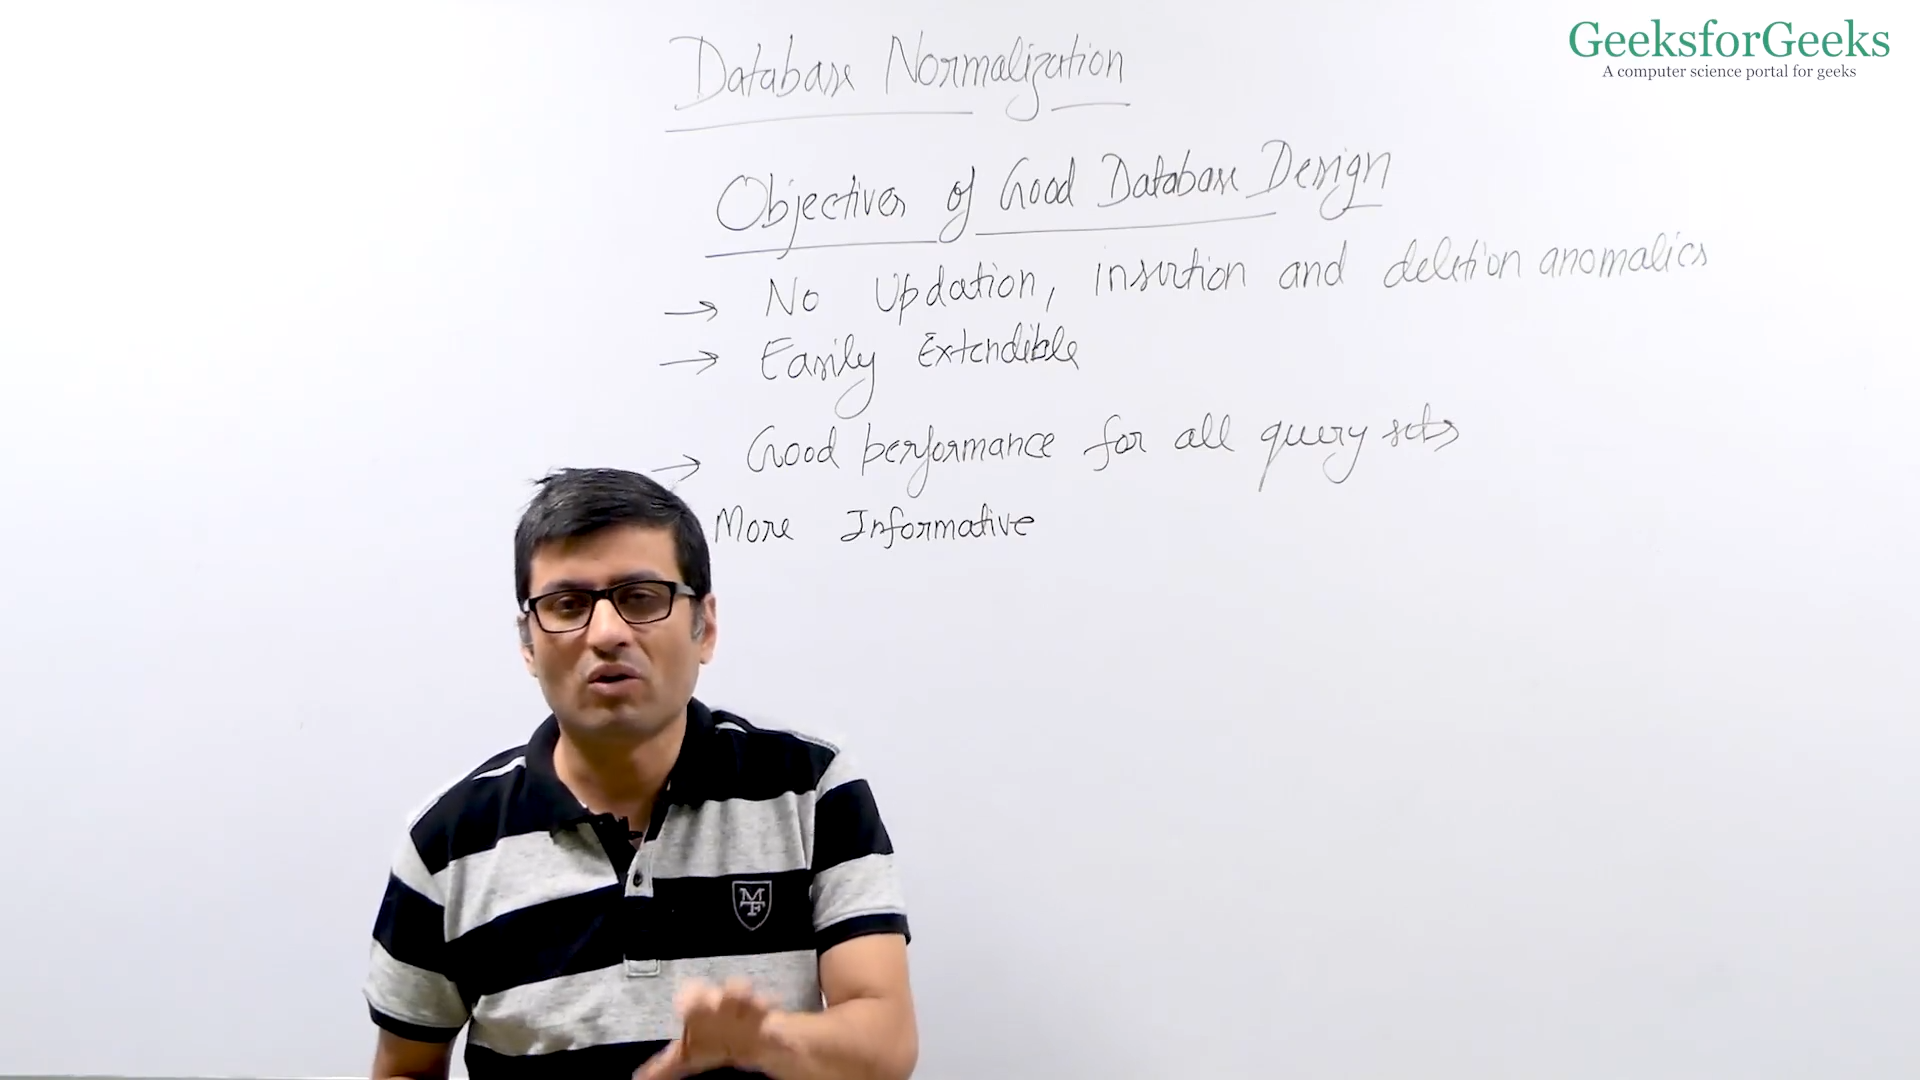 GeeksforGeeks
A computer science portal for geeks
Database Normalization
Objectives of Good Database Design
→ No Updation, insertion and deletion anomalies
→ Easily Extendible
→ Good performance for all query sets
More Informative
MF